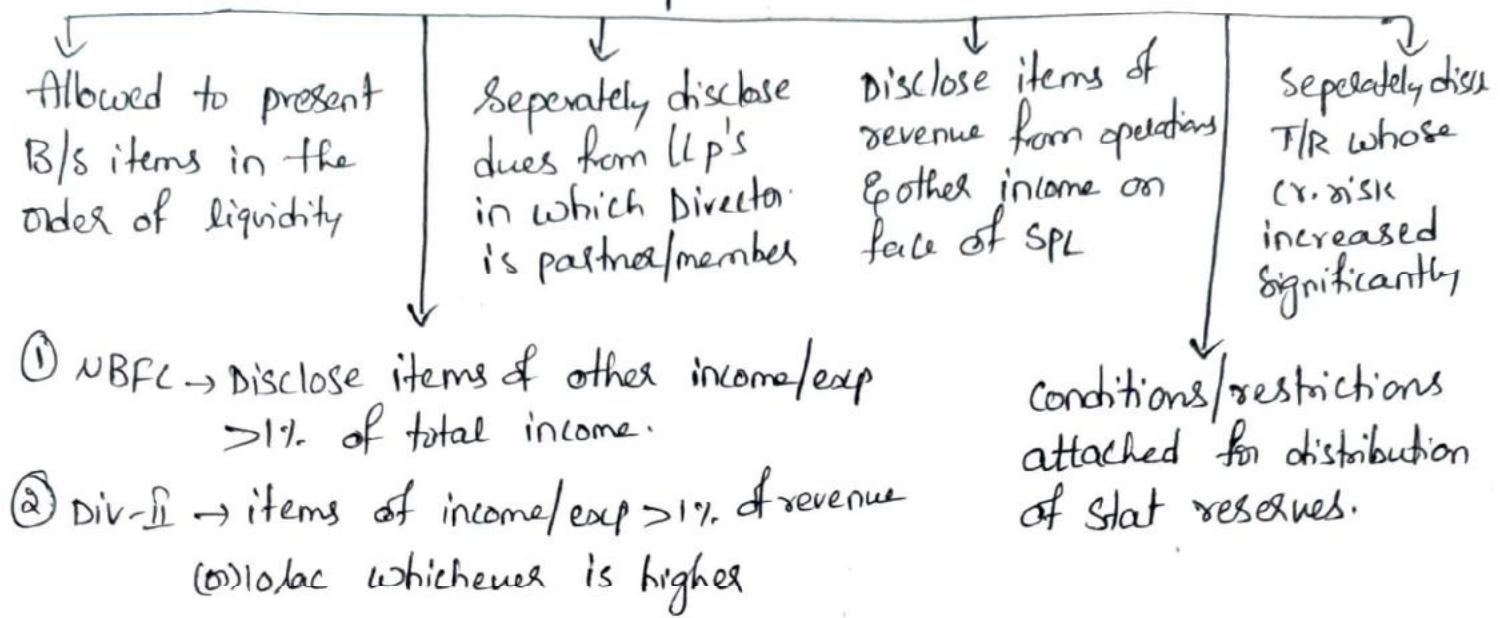 Allowed to present
B/s items in the
order of liquidity
Seperately disclose
dues from LLp's
in which Director
is partner/member
Disclose items of
revenue from operations
& other income on
face of SPL
Seperately discl
T/R whose
Cr. risk
increased
significantly
① NBFC → Disclose items of other income/exp
>1% of total income.
② Div-II → items of income/exp >1% of revenue
(or) 10 lac whichever is higher
Conditions/restrictions
attached for distribution
of stat reserves.